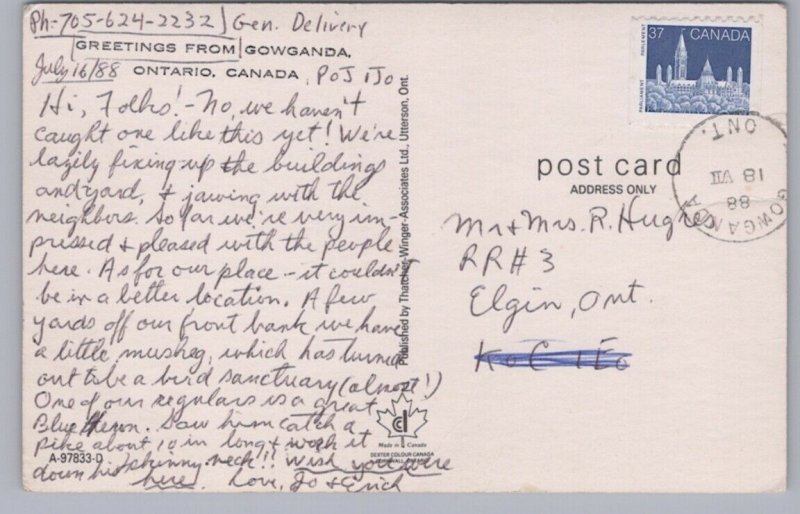 Ph:-705-624-2232 Gen. Delivery
GREETINGS FROM GOWGANDA,
July 16/88 ONTARIO, CANADA P0J 1J0
Hi, Folks! - No, we haven't
caught one like this yet! We're
lazily fixing up the buildings
and yard, & jawing with the
neighbors. So far we're very im-
pressed & pleased with the people
here. As for our place - it couldn't
be in a better location. A few
yards off our front bank we have
a little muskeg, which has turned
out to be a bird sanctuary (almost!)
One of our regulars is a great
Blue Heron. Saw him catch a
pike about 10 in long & work it
down his skinny neck!! Wish you were
here! Love, Jo & Erich
A-97833-D
Published by Thatcher-Winger-Associates Ltd., Utterson, Ont.
Made in Canada
DEXTER COLOUR CANADA
37 CANADA
PARLIAMENT PARLEMENT
GOWGANDA
ONT.
18 VII
88
post card
ADDRESS ONLY
Mr & Mrs. R. Hughes
RR# 3
Elgin, Ont.
K0G 1E0